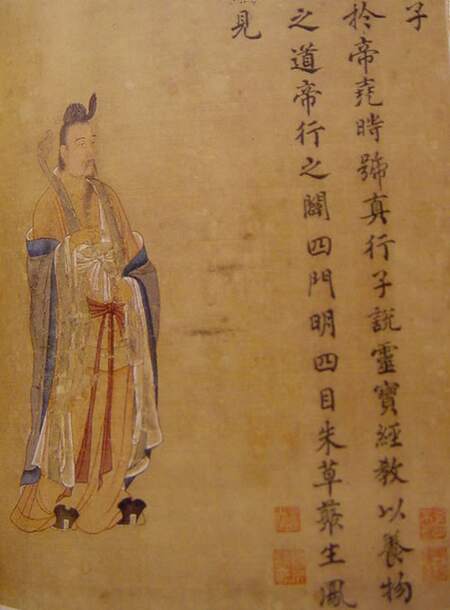 子
於帝堯時號真行子說靈寶經教以養物
之道帝行之闢四門明四目朱草叢生鳳
見